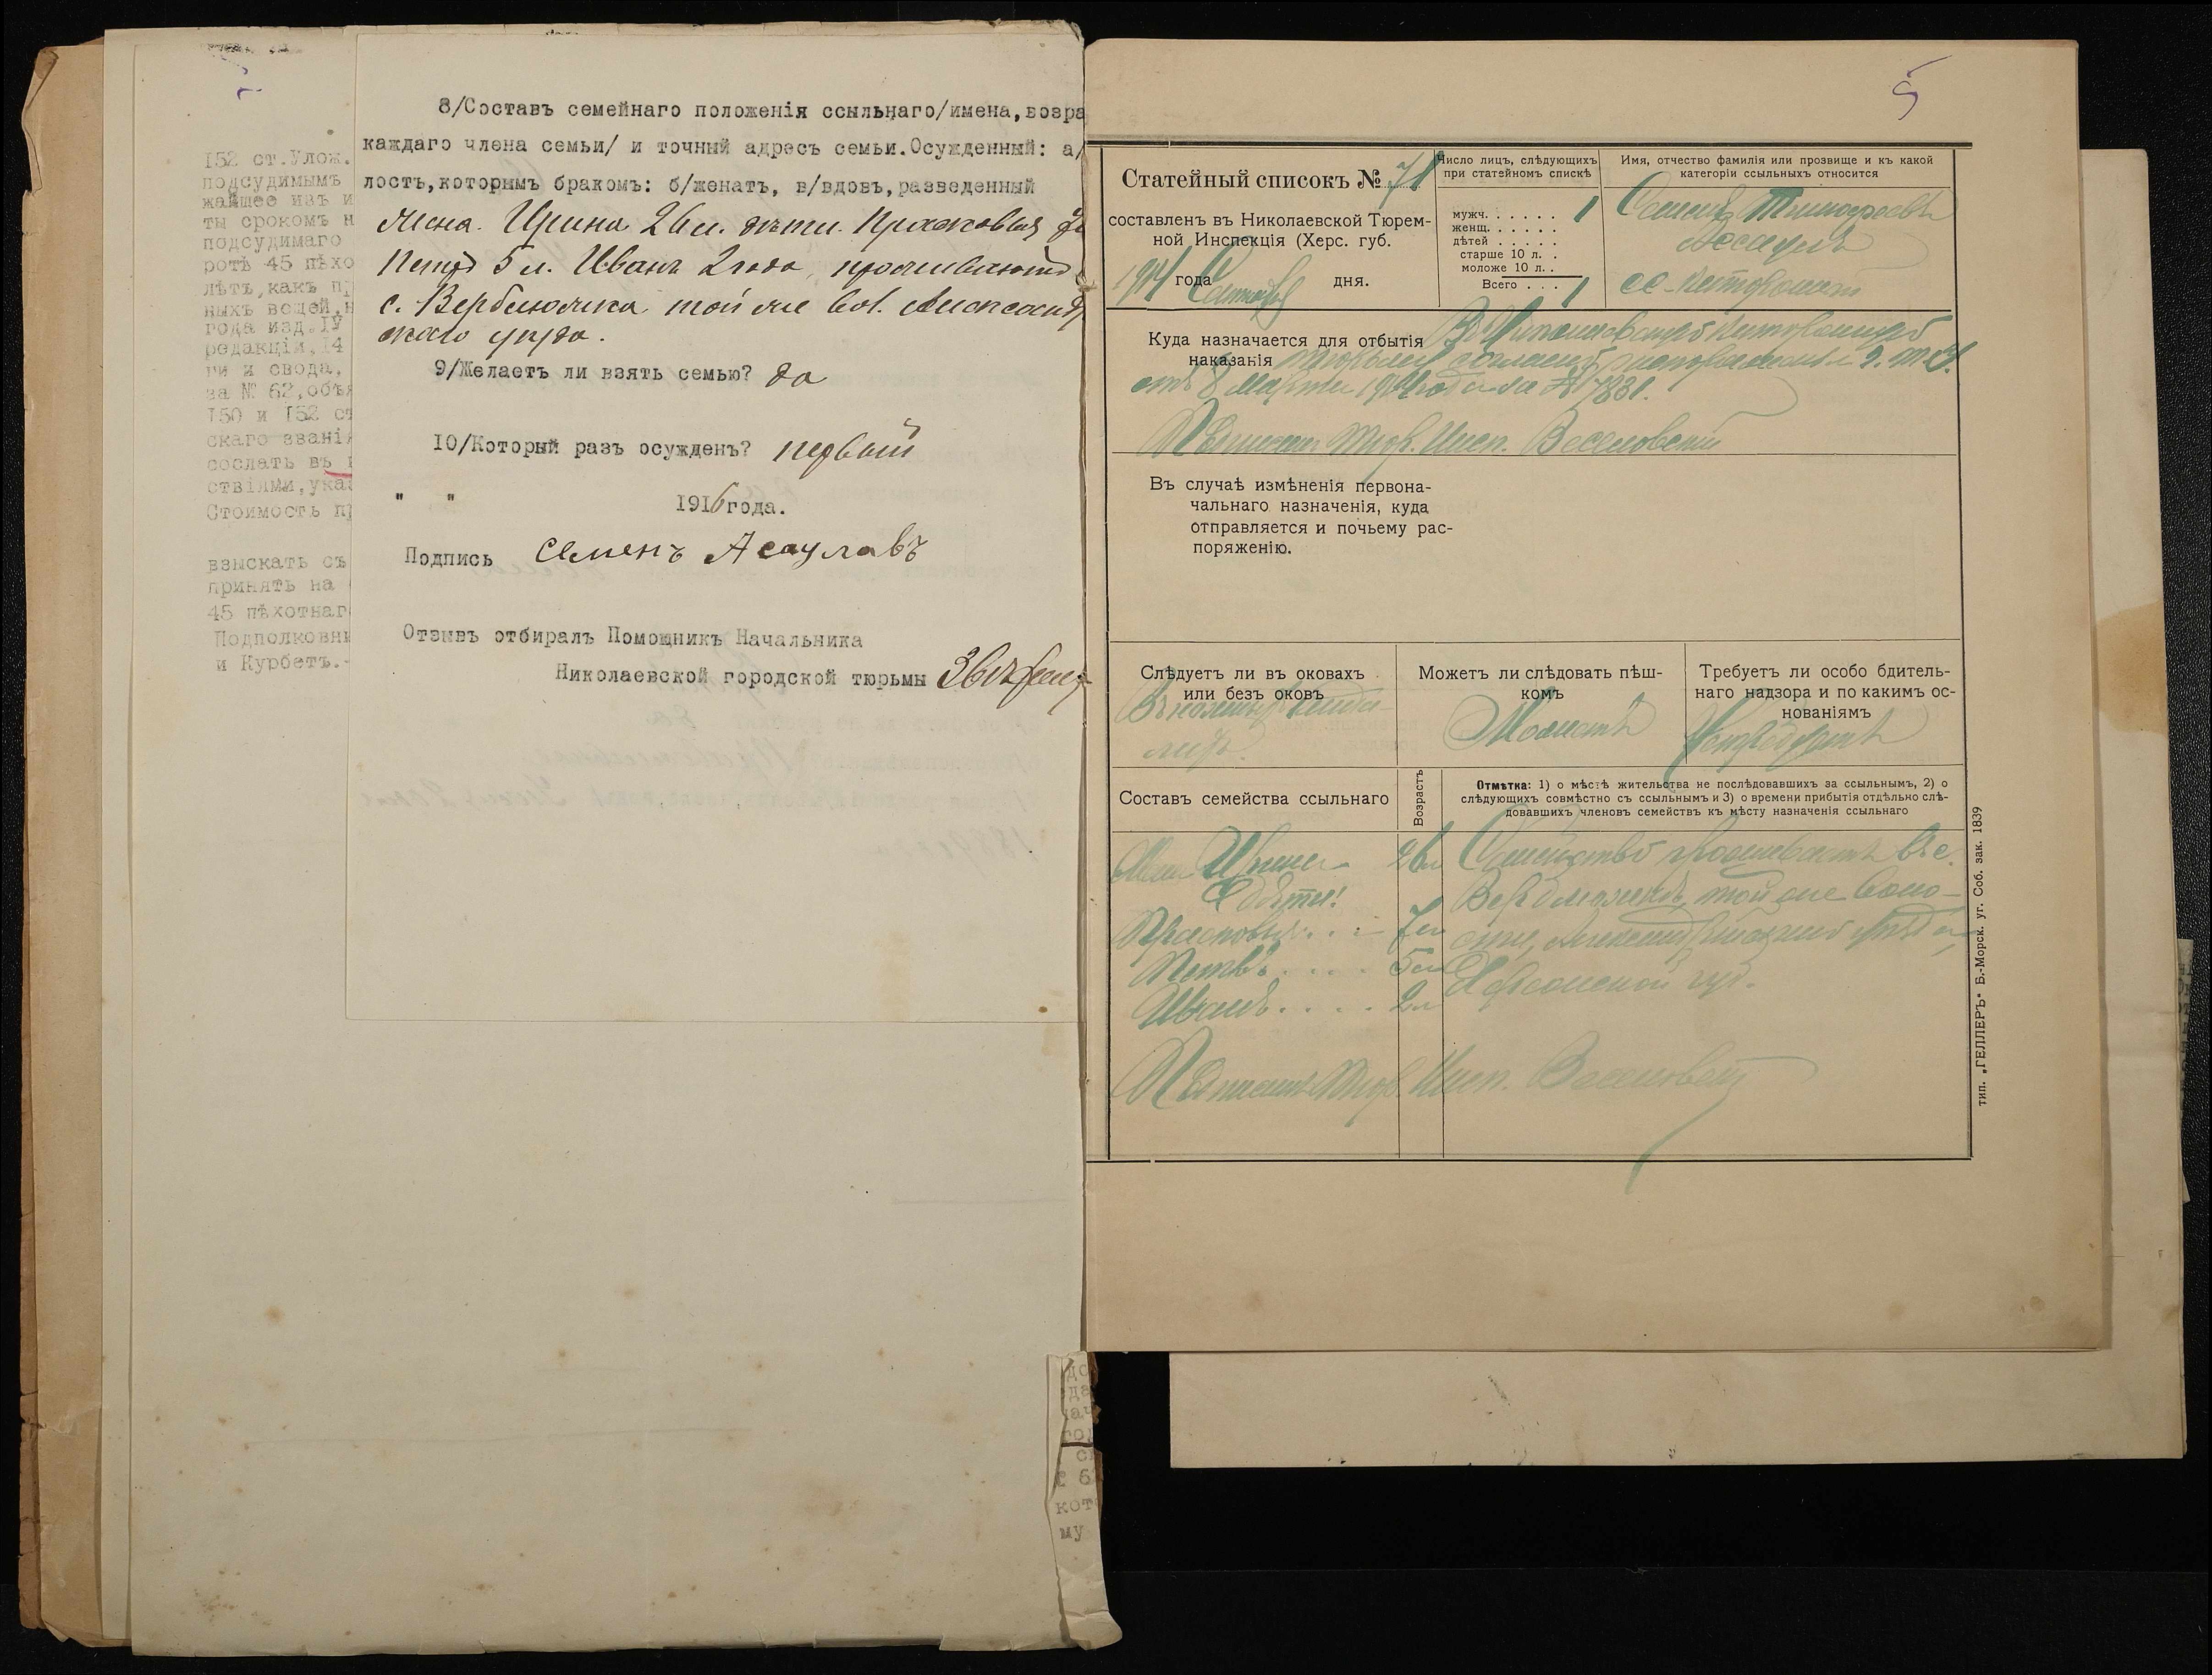 152 ст.Улож.
подсудимымъ
жайшее изъ и
ты срокомъ н
подсудимаго
ротѣ 45 пѣхо
лѣтъ,какъ пр
ныхъ вещей,н
года изд.IУ
редакціи,14
ги и свода,
за № 62,объя
150 и 152 ст
скаго званія
сослать въ
ствіями,указ
Стоимость пр
взыскать съ
принять на
45 пѣхотнаг
Подполковни
и Курбетъ.-
8/Составъ семейнаго положенія ссыльнаго/имена,возра
каждаго члена семьи/ и точный адресъ семьи.Осужденный: а/
лость,которымъ бракомъ: б/женатъ, в/вдовъ,разведенный
Жена. Ирина 26 л. дѣти. Прасковья
Петръ 5 л. Иванъ 2 года, проживаютъ
с. Верблюжка той же вол. Александрій
скаго уѣзда.
9/Желаетъ ли взять семью? да
10/Который разъ осужденъ? первый
" " 1916 года.
Подпись Семенъ Асаулавъ
Отзывъ отбиралъ Помощникъ Начальника
Николаевской городской тюрьмы
5
Статейный списокъ № 71
составленъ въ Николаевской Тюрем-
ной Инспекція (Херс. губ.
года дня.
Число лицъ, слѣдующихъ
при статейномъ спискѣ
мужч. . . . . . . 1
женщ. . . . . . .
дѣтей . . . . .
старше 10 л. .
моложе 10 л. .
Всего . . . 1
Имя, отчество фамилія или прозвище и къ какой
категоріи ссыльныхъ относится
Семенъ Тимофеевъ
Асаулъ
сс-каторжный
Куда назначается для отбытія
наказанія
отъ 8 Марта 1914 года за № 7831.
Подписалъ Тюр. Инсп. Веселовскій
Въ случаѣ измѣненія первона-
чальнаго назначенія, куда
отправляется и почьему рас-
поряженію.
Слѣдуетъ ли въ оковахъ
или безъ оковъ
Въ ножныхъ канда-
лахъ.
Можетъ ли слѣдовать пѣш-
комъ
Можетъ
Требуетъ ли особо бдитель-
наго надзора и по какимъ ос-
нованіямъ
Составъ семейства ссыльнаго
Возрастъ
Отмѣтка: 1) о мѣстѣ жительства не послѣдовавшихъ за ссыльнымъ, 2) о
слѣдующихъ совмѣстно съ ссыльнымъ и 3) о времени прибытія отдѣльно слѣ-
довавшихъ членовъ семействъ къ мѣсту назначенія ссыльнаго
Жена Ирина 26 л
дѣти:
Прасковья . . . 7 л
Петръ . . . . 5 л
Иванъ . . . . 2 л
Семейство проживаетъ въ с.
Верблюжкѣ, той же воло-
сти, Александрійскаго уѣзда,
Херсонской губ.
Подписалъ Тюр. Инсп. Веселовскій
тип. „ГЕЛЛЕРЪ" Б.-Морск. уг. Соб. зак. 1839